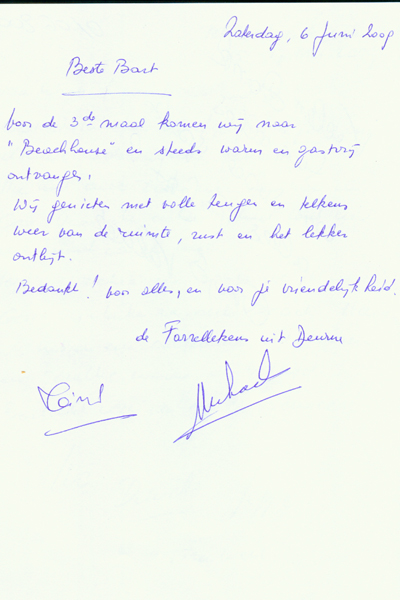 Zaterdag, 6 Juni 2009
Beste Bart
Voor de 3de maal komen wij naar
"Beachhouse" en steeds warm en gastvrij
ontvangen.
Wij genieten met volle teugen en telkens
weer van de ruimte, rust en het lekker
ontbijt.
Bedankt! voor alles, en voor je vriendelijkheid.
de Forrellekens uit Deurne
Michael